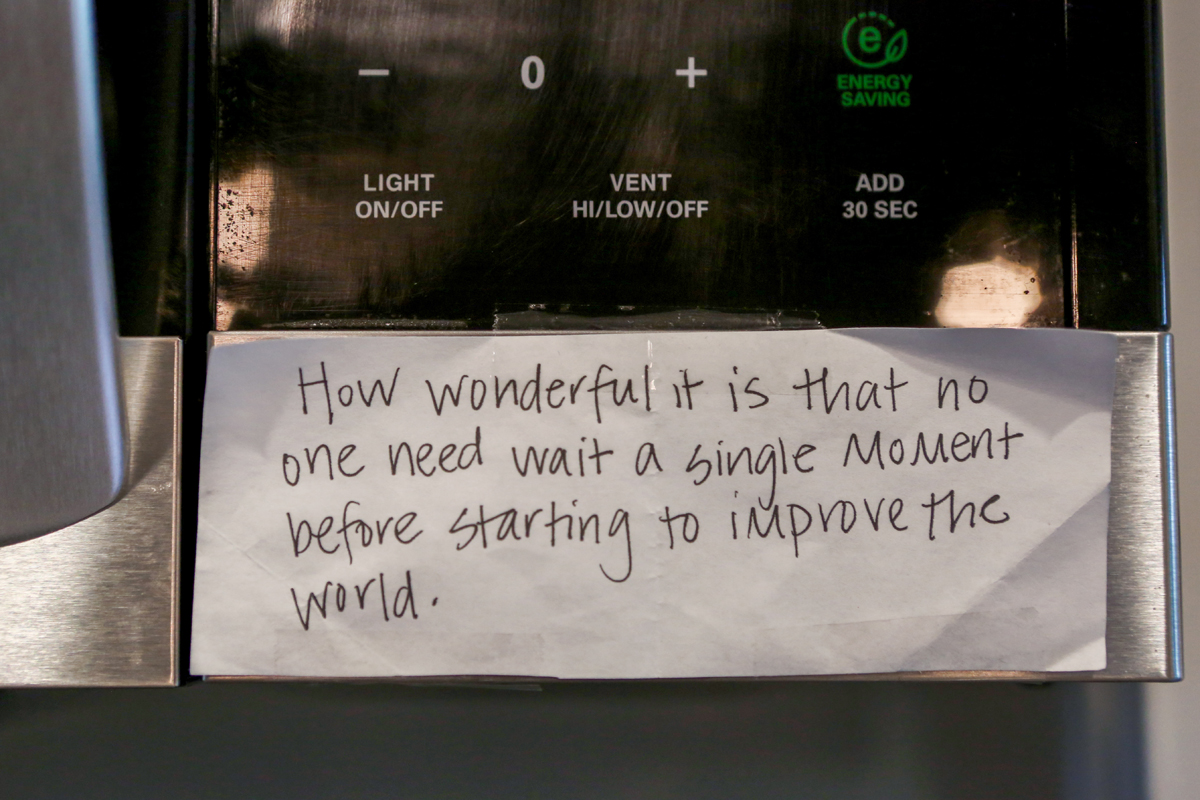 − 0 +
e
ENERGY
SAVING
LIGHT
ON/OFF
VENT
HI/LOW/OFF
ADD
30 SEC
How wonderful it is that no
one need wait a single moment
before starting to improve the
world.